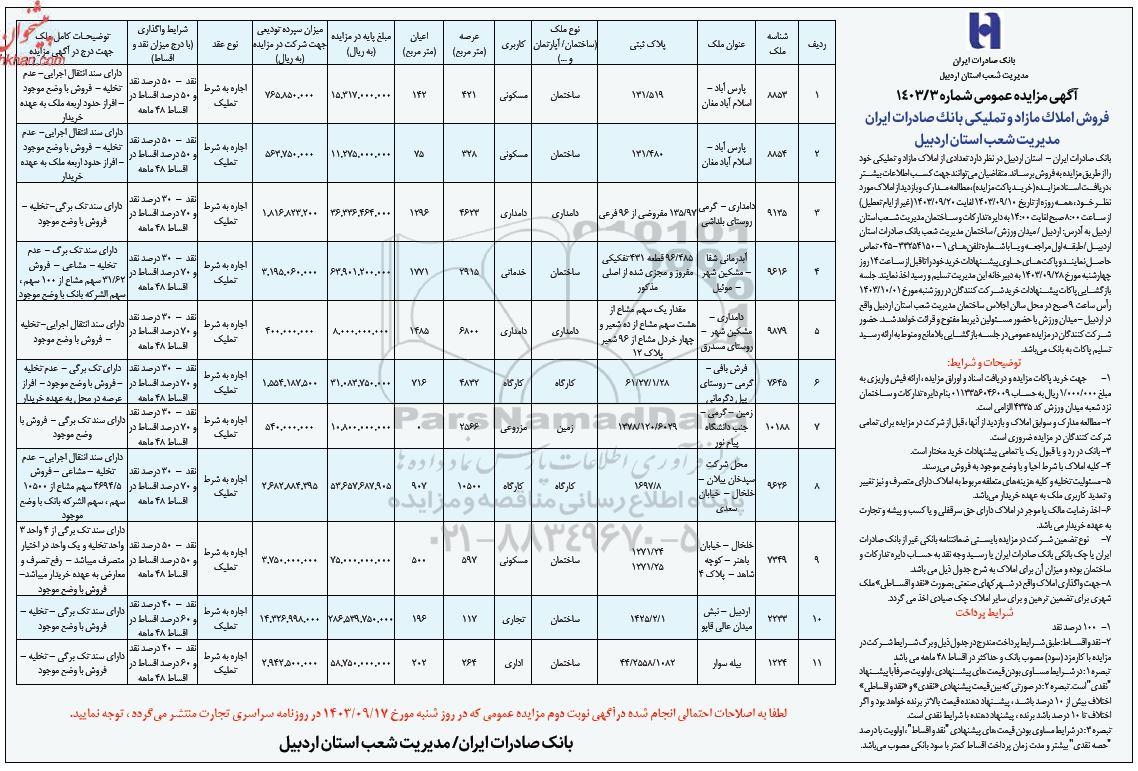 بانک صادرات ایران
مدیریت شعب استان اردبیل
آگهی مزایده عمومی شماره ۱۴۰۳/۳
فروش املاک مازاد و تملیکی بانک صادرات ایران
مدیریت شعب استان اردبیل
بانک صادرات ایران – استان اردبیل در نظر دارد تعدادی از املاک مازاد و تملیکی خود
را از طریق مزایده به فروش برساند. متقاضیان می‌توانند جهت کسب اطلاعات بیشتر
،دریافت اسناد مزایده (خرید پاکت مزایده)، مطالعه مدارک و بازدید از املاک مورد
نظر خود، همه روزه از تاریخ ۱۴۰۳/۰۹/۱۰ لغایت ۱۴۰۳/۰۹/۲۰ (غیر از ایام تعطیل)
از ساعت ۸:۰۰ صبح لغایت ۱۴:۰۰ به دایره تدارکات و ساختمان مدیریت شعب استان
اردبیل به آدرس: اردبیل / میدان ورزش / ساختمان مدیریت شعب بانک صادرات استان
اردبیل / طبقه اول مراجعه و یا با شماره تلفن های ۱–۳۳۲۵۴۱۵۰–۰۴۵ تماس
حاصل نمایند و پاکت‌های حاوی پیشنهادات خرید خود را تا قبل از ساعت ۱۴ روز
چهارشنبه مورخ ۱۴۰۳/۰۹/۲۸ به دبیرخانه این مدیریت تسلیم و رسید اخذ نمایند. جلسه
بازگشایی پاکات پیشنهادات خرید شرکت کنندگان در روز شنبه مورخ ۱۴۰۳/۱۰/۰۱
رأس ساعت ۹ صبح در محل سالن اجلاس ساختمان مدیریت شعب استان اردبیل واقع
در اردبیل – میدان ورزش با حضور مسئولین ذیربط مفتوح و قرائت خواهد شد. حضور
شرکت کنندگان در مزایده عمومی در جلسه بازگشایی بلامانع و منوط به ارائه رسید
تسلیم پاکات به بانک می‌باشد.
توضیحات و شرایط:
۱– جهت خرید پاکات مزایده و دریافت اسناد و اوراق مزایده، ارائه فیش واریزی به
مبلغ ۱/۰۰۰/۰۰۰ ریال به حساب ۰۱۱۳۳۵۶۰۴۶۰۰۹ بنام دایره تدارکات و ساختمان
نزد شعبه میدان ورزش کد ۴۳۳۵ الزامی است.
۲–مطالعه مدارک و سوابق املاک و بازدید از آنها، قبل از شرکت در مزایده برای تمامی
شرکت کنندگان در مزایده ضروری است.
۳–بانک در رد و یا قبول یک یا تمامی پیشنهادات خرید مختار است.
۴–کلیه املاک با شرط احیا و با وضع موجود به فروش می‌رسند.
۵–مسئولیت تخلیه و کلیه هزینه‌های متعلقه مربوط به املاک دارای متصرف و نیز تغییر
و تمدید کاربری ملک به عهده خریدار می‌باشد.
۶–اخذ رضایت مالک یا موجر در املاک دارای حق سرقفلی و یا کسب و پیشه و تجارت
به عهده خریدار می باشد.
۷– نوع تضمین شرکت در مزایده بایستی ضمانتنامه بانکی غیر از بانک صادرات
ایران یا چک بانکی بانک صادرات ایران یا رسید وجه نقد به حساب دایره تدارکات و
ساختمان بوده و میزان آن برای املاک به شرح جدول ذیل می باشد.
۸–جهت واگذاری املاک واقع در شهرکهای صنعتی بصورت «نقد و اقساطی» ملک
شهری برای تضمین ترهین و برای سایر املاک چک صیادی اخذ می گردد.
شرایط پرداخت
۱– ۱۰۰ درصد نقد
۲–نقد و اقساط: طبق شرایط پرداخت مندرج در جدول ذیل و برگ شرایط شرکت در
مزایده با کارمزد (سود) مصوب بانک و حداکثر در اقساط ۴۸ ماهه می باشد
تبصره ۱: در شرایط مساوی بودن قیمت های پیشنهادی، اولویت صرفاً با پیشنهاد
"نقدی" است. تبصره ۲: در صورتی که بین قیمت پیشنهادی «نقدی» و «نقد و اقساطی»
اختلاف بیش از ۱۰ درصد باشد، پیشنهاد دهنده قیمت بالاتر برنده خواهد بود و اگر
اختلاف تا ۱۰ درصد باشد برنده، پیشنهاد دهنده با شرایط نقدی است.
تبصره ۳: در شرایط مساوی بودن قیمت های پیشنهادی "نقد و اقساط"، اولویت با درصد
"حصه نقدی" بیشتر و مدت زمان پرداخت اقساط کمتر با سود بانکی مصوب می‌باشد.
ردیف | شناسه ملک | عنوان ملک | نوع ملک (ساختمان/ آپارتمان و ...) پلاک ثبتی | کاربری | عرصه (متر مربع) | اعیان (متر مربع) | مبلغ پایه در مزایده (به ریال) | میزان سپرده تودیعی جهت شرکت در مزایده (به ریال) | نوع عقد | شرایط واگذاری (با درج میزان نقد و اقساط) | توضیحات کامل ملک جهت درج در آگهی مزایده
۱ | ۸۸۵۳ | پارس آباد – اسلام آباد مغان | ۱۳۱/۵۱۹ | ساختمان | مسکونی | ۴۲۱ | ۱۴۲ | ۱۵,۳۱۷,۰۰۰,۰۰۰ | ۷۶۵,۸۵۰,۰۰۰ | اجاره به شرط تملیک | نقد – ۵۰ درصد نقد و ۵۰ درصد اقساط در اقساط ۴۸ ماهه | دارای سند انتقال اجرایی– عدم تخلیه – فروش با وضع موجود – افراز حدود اربعه ملک به عهده خریدار
۲ | ۸۸۵۴ | پارس آباد – اسلام آباد مغان | ۱۳۱/۴۸۰ | ساختمان | مسکونی | ۳۲۸ | ۷۵ | ۱۱,۲۷۵,۰۰۰,۰۰۰ | ۵۶۳,۷۵۰,۰۰۰ | اجاره به شرط تملیک | نقد – ۵۰ درصد نقد و ۵۰ درصد اقساط در اقساط ۴۸ ماهه | دارای سند انتقال اجرایی– عدم تخلیه – فروش با وضع موجود – افراز حدود اربعه ملک به عهده خریدار
۳ | ۹۱۳۵ | دامداری – گرمی روستای بلداشی | ۱۳۵/۹۷ مفروضی از ۹۶ فرعی | دامداری | دامداری | ۴۶۲۳ | ۱۲۹۶ | ۳۶,۳۳۶,۴۶۴,۰۰۰ | ۱,۸۱۶,۸۲۳,۲۰۰ | اجاره به شرط تملیک | نقد – ۳۰ درصد نقد و ۷۰ درصد اقساط در اقساط ۴۸ ماهه | دارای سند تک برگی– تخلیه – فروش با وضع موجود
۴ | ۹۶۱۶ | آبدرمانی شفا – مشکین شهر – موئیل | ۹۶/۴۸۵ قطعه ۴۳۱ تفکیکی مفروز و مجزی شده از اصلی مذکور | ساختمان | خدماتی | ۲۹۱۵ | ۱۷۷۱ | ۶۳,۹۰۱,۲۰۰,۰۰۰ | ۳,۱۹۵,۰۶۰,۰۰۰ | اجاره به شرط تملیک | نقد – ۳۰ درصد نقد و ۷۰ درصد اقساط در اقساط ۴۸ ماهه | دارای سند تک برگ – عدم تخلیه – مشاعی – فروش ۳۱/۶۲ سهم مشاع از ۱۰۰ سهم ، سهم الشرکه بانک با وضع موجود
۵ | ۹۸۷۹ | دامداری – مشکین شهر – روستای مسدرق | مقدار یک سهم مشاع از هشت سهم مشاع از ده شعیر و چهار خردل مشاع از ۹۶ شعیر پلاک ۱۲ | دامداری | دامداری | ۶۸۰۰ | ۱۴۸۵ | ۸,۰۰۰,۰۰۰,۰۰۰ | ۴۰۰,۰۰۰,۰۰۰ | اجاره به شرط تملیک | نقد – ۳۰ درصد نقد و ۷۰ درصد اقساط در اقساط ۴۸ ماهه | دارای سند انتقال اجرایی– تخلیه – فروش با وضع موجود
۶ | ۷۶۴۵ | فرش بافی – گرمی – روستای بیل دگرمانی | ۶۱/۲۷/۱/۲۸ | کارگاه | کارگاه | ۴۸۳۲ | ۷۱۶ | ۳۱,۰۸۳,۷۵۰,۰۰۰ | ۱,۵۵۴,۱۸۷,۵۰۰ | اجاره به شرط تملیک | نقد – ۳۰ درصد نقد و ۷۰ درصد اقساط در اقساط ۴۸ ماهه | دارای تک برگی – عدم تخلیه – فروش با وضع موجود – افراز عرصه در محل به عهده خریدار
۷ | ۱۰۱۸۸ | زمین – گرمی – جنب دانشگاه پیام نور | ۱۳۷۸/۱۲۰/۶۰۲۹ | زمین | مزروعی | ۲۵۶۶ | ۰ | ۱۰,۸۰۰,۰۰۰,۰۰۰ | ۵۴۰,۰۰۰,۰۰۰ | اجاره به شرط تملیک | نقد – ۳۰ درصد نقد و ۷۰ درصد اقساط در اقساط ۴۸ ماهه | دارای سند تک برگی – فروش با وضع موجود
۸ | ۹۶۲۶ | محل شرکت سپدخان بیلان – خلخال – خیابان سعدی | ۱۶۹۷/۸ | کارگاه | کارگاه | ۱۰۵۰۰ | ۹۰۷ | ۵۳,۶۵۷,۶۸۷,۹۰۵ | ۲,۶۸۲,۸۸۴,۳۹۵ | اجاره به شرط تملیک | نقد – ۳۰ درصد نقد و ۷۰ درصد اقساط در اقساط ۴۸ ماهه | دارای سند انتقال اجرایی– عدم تخلیه – مشاعی – فروش ۴۶۹۴/۵ سهم مشاع از ۱۰۵۰۰ سهم ، سهم الشرکه بانک با وضع موجود
۹ | ۷۳۴۹ | خلخال – خیابان باهنر – کوچه شاهد – پلاک ۴ | ۱۲۷۱/۲۴ ۱۲۷۱/۲۵ | ساختمان | مسکونی | ۵۹۷ | ۵۰۰ | ۷۵,۰۰۰,۰۰۰,۰۰۰ | ۳,۷۵۰,۰۰۰,۰۰۰ | اجاره به شرط تملیک | نقد – ۵۰ درصد نقد و ۵۰ درصد اقساط در اقساط ۴۸ ماهه | دارای سند تک برگی از ۴ واحد ۳ واحد تخلیه و یک واحد در اختیار متصرف میباشد – رفع تصرف و معارض به عهده خریدار میباشد– فروش با وضع موجود
۱۰ | ۲۲۳۳ | اردبیل – نبش میدان عالی قاپو | ۱۴۲۵/۲/۱ | ساختمان | تجاری | ۱۱۷ | ۱۹۶ | ۲۸۶,۵۳۹,۷۵۰,۰۰۰ | ۱۴,۳۲۶,۹۹۸,۰۰۰ | اجاره به شرط تملیک | نقد – ۴۰ درصد نقد و ۶۰ درصد اقساط در اقساط ۴۸ ماهه | دارای سند تک برگی – تخلیه – فروش با وضع موجود
۱۱ | ۱۲۲۴ | بیله سوار | ۴۴/۲۵۵۸/۱۰۸۲ | ساختمان | اداری | ۲۶۴ | ۲۰۲ | ۵۸,۷۵۰,۰۰۰,۰۰۰ | ۲,۹۴۲,۵۰۰,۰۰۰ | اجاره به شرط تملیک | نقد – ۴۰ درصد نقد و ۶۰ درصد اقساط در اقساط ۴۸ ماهه | دارای سند تک برگی – تخلیه – فروش با وضع موجود
لطفا به اصلاحات احتمالی انجام شده در آگهی نوبت دوم مزایده عمومی که در روز شنبه مورخ ۱۴۰۳/۰۹/۱۷ در روزنامه سراسری تجارت منتشر می‌گردد ، توجه نمایید.
بانک صادرات ایران/ مدیریت شعب استان اردبیل
ParsNamadData
فرآوری اطلاعات پارس نماد داده ها
پایگاه اطلاع رسانی مناقصه و مزایده
۰۲۱-۸۸۳۴۹۶۷۰-۵
پیشخوان